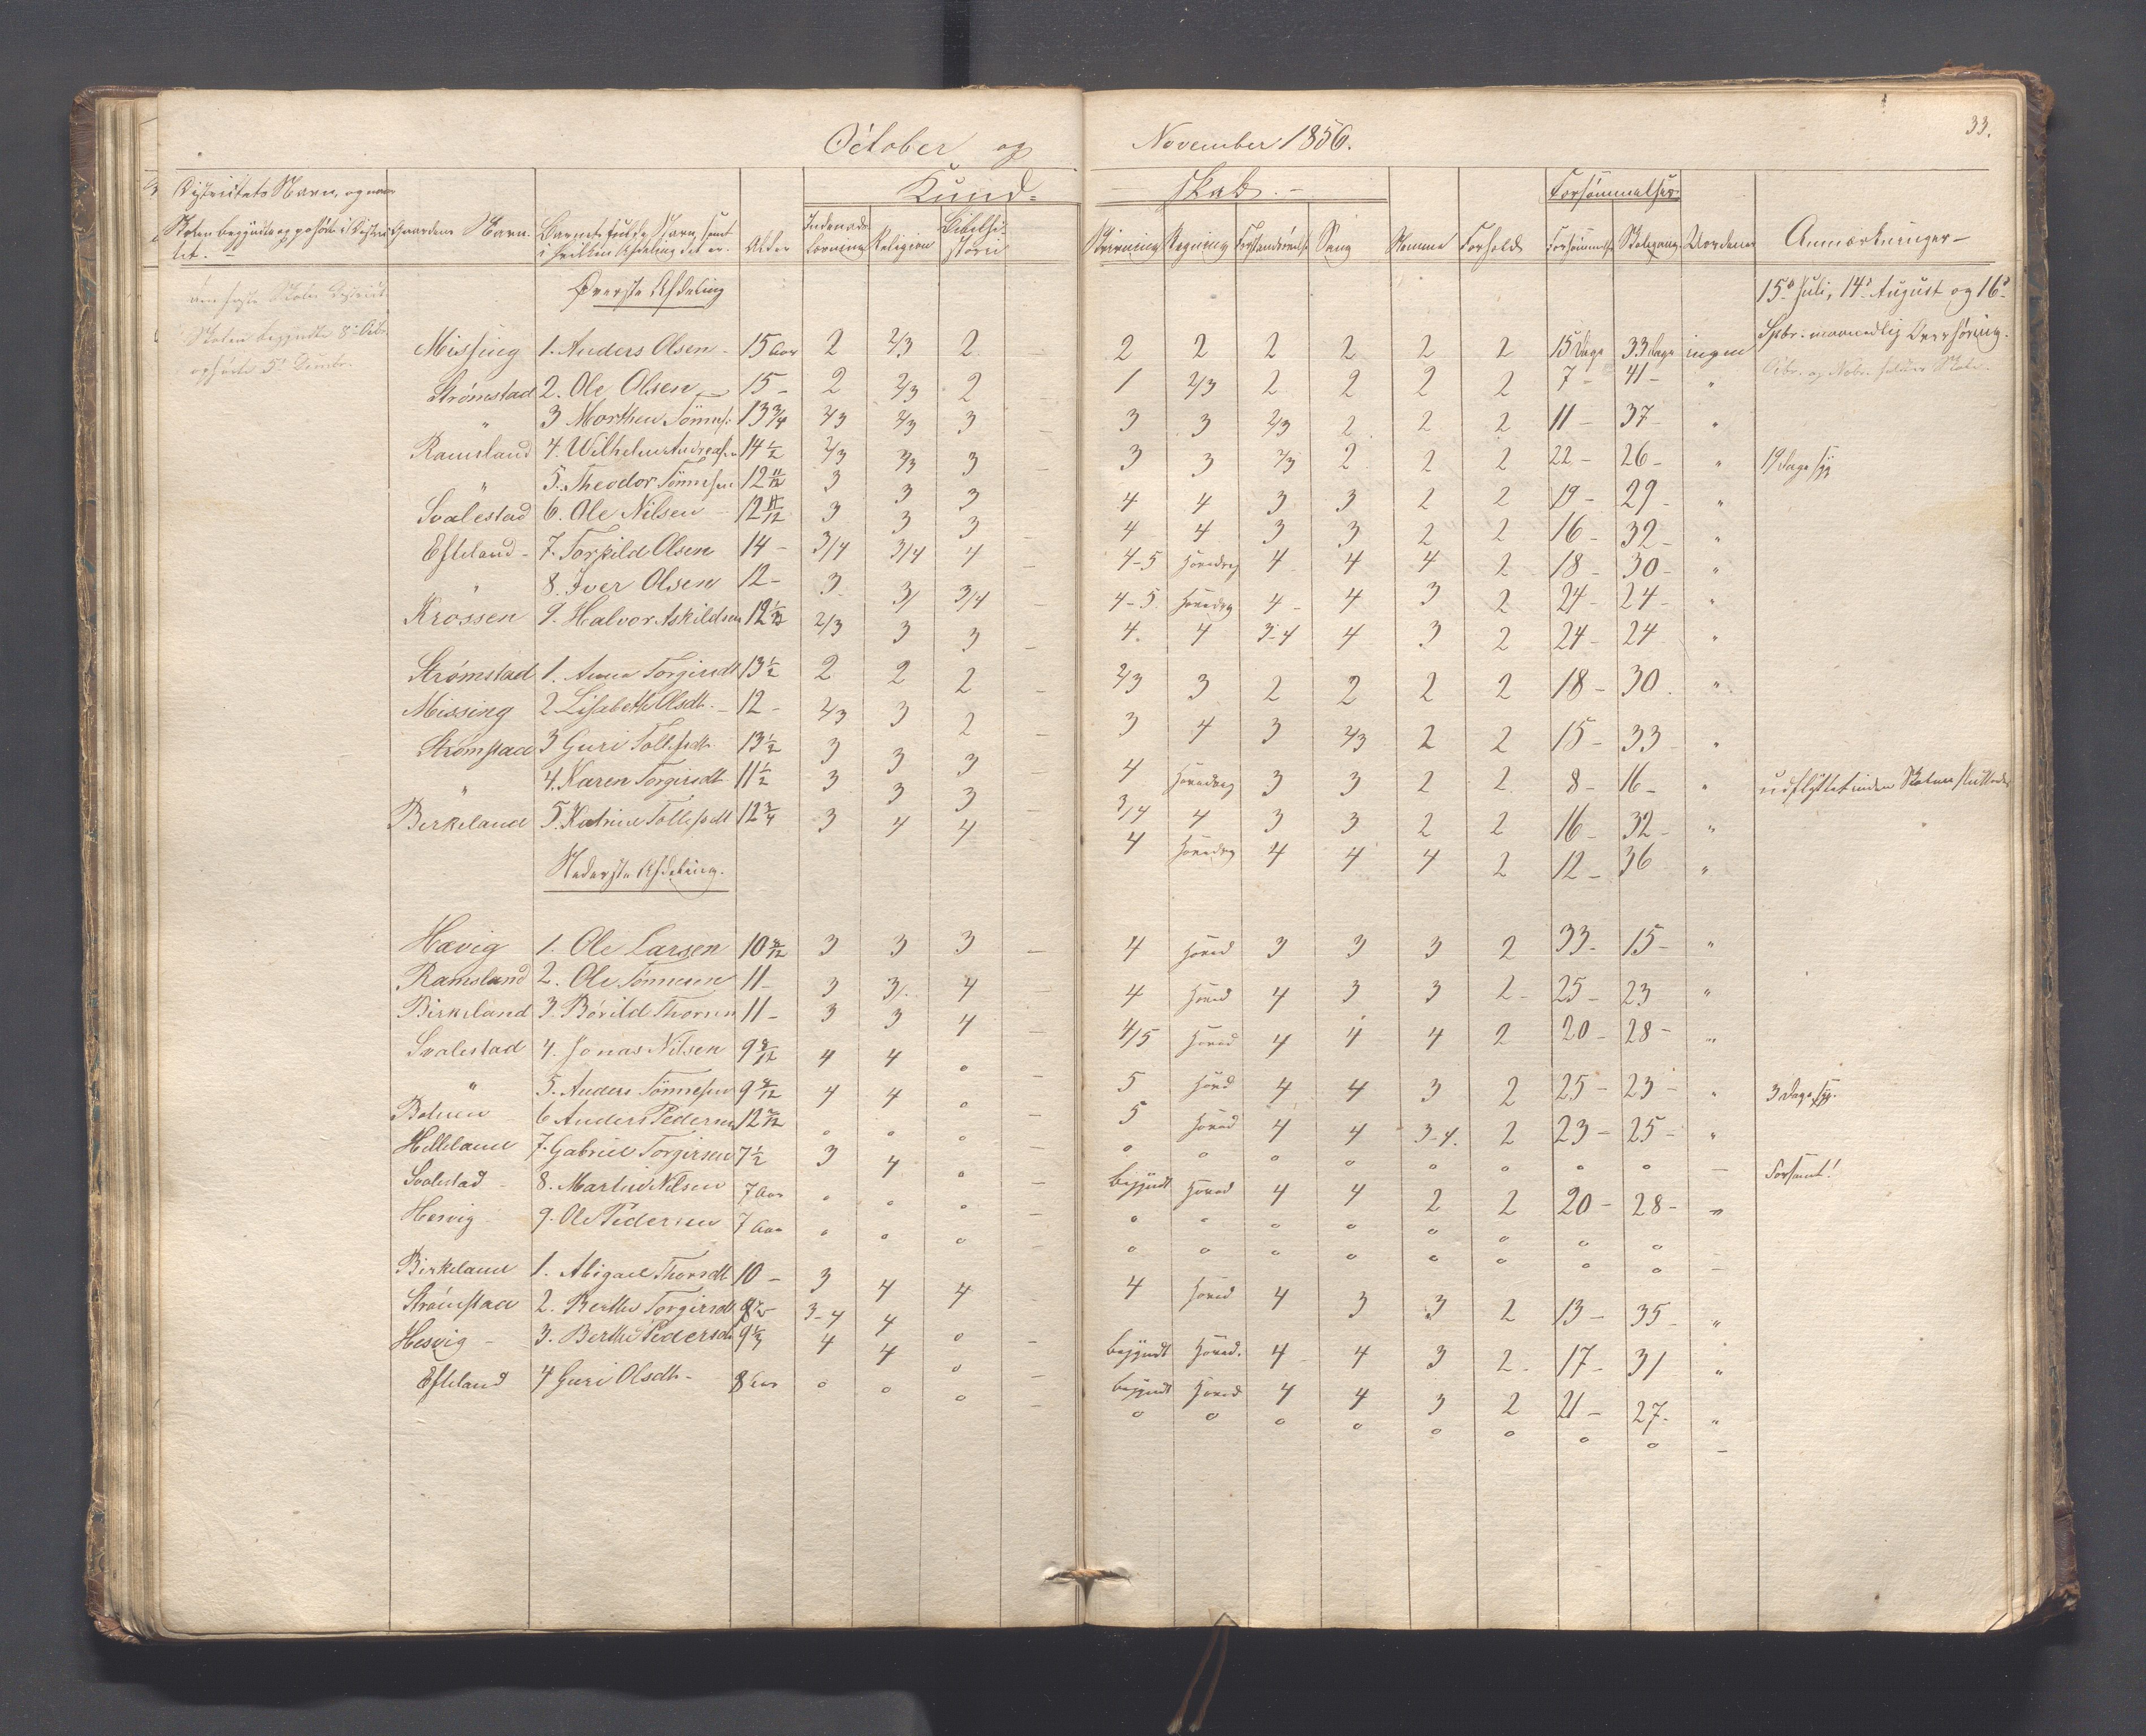 October og November 1856.
33.
Kund- - skab. -
Districtets Navn, og naar
Skolen begyndte og ophörte i Distric-
tet. -
Gaardens Navn.
Barnets fulde Navn, samt
i hvilken Afdeling det er.
Alder
Religion
Bibelhi-
storie
Skrivning
Regning
Sang
Nemme
Forhold
Forsømmelser
Forsømmelse
Skolegang
Anmærkninger -
Øverste Afdeling
15de Juli, 14de August og 16de
Spbr. maanedlig Overhøring.
Skolen begyndte 8de Octbr.
ophørte 5te Decembr.
Octbr. og Novbr. holdes Skole.
Missing 1. Anders Olsen - 15 Aar 2 2/3 2 - 2 2 2 2 2 2 15 Dage 33 Dage ingen
Strømstad 2. Ole Olsen - 15 - 2 2/3 2 - 1 2/3 2 2 2 2 7 - 41 - "
" 3 Morthen Tönnes: 13 3/4 2/3 2/3 3 - 3 3 2/3 2 2 2 11 - 37 - "
Ramsland 4. Wilhelm Andreasen 14 1/2 2/3 2/3 3 - 3 3 2/3 2 2 2 22 - 26 - " 19 Dage syg
" 5. Theodor Tönnesen 12 11/12 3 3 3 - 4 4 3 3 2 2 19 - 29 - "
Svalestad 6. Ole Nilsen - 12 11/12 3 3 3 - 4 4 3 3 2 2 16 - 32 - "
Efteland - 7. Torkild Olsen 14 - 3/4 3/4 4 - 4-5 Hoved 4 4 4 2 18 - 30 - "
" 8. Iver Olsen 12 - 3 3/ 3/4 - 4-5. Hoved 4 - 4 3 2 24 - 24 - "
Krossen 9. Halvor Askildsen 12 2/3 3 3 - 4. 4 3-4 4 3 2 24 - 24 "
Strømstad 1. Anna Torgirsdt 13 1/2 2 2 2 - 2/3 3 2 2 2 2 18 - 30. "
Missing 2 Lisabeth Olsdt. - 12 - 2/3 3 2 - 3 4 3 2/3 2 2 15 - 33 "
Strømstad 3 Guri Tollefsdt. 13 1/2 3 3 3 - 4 Hoved 3 3 2 2 8 - 16 - " udflyttet inden Skolen sluttede
" 4. Karen Torgirsdt 11 1/2 3 3 3 - 3/4 4 3 3 2 2 16 - 32 - "
Birkeland 5. Katrine Tollefsdt 12 3/4 3 4 4 - 4 Hoved 4 4 4 2 12 - 36 "
Nederste Afdeling.
Hævig 1. Ole Larsen 10 3 3 3 - 4 Hoved 3 3 3 2 33 - 15 - "
Ramsland 2. Ole Tönnesen 11 - 3 3/. 4 - 4 Hoved 4 3 3 2 - 25 - 23 "
Birkeland 3. Börild Thorsen 11 - 3 3 4 - 4/5 Hoved 4 4 4 2 20 - 28 - "
Svalestad 4. Jonas Nilsen 9 4 4 o - 5 Hoved 4 4 3 2 25 - 23 - " 3 Dage syg.
" 5. Anders Tönnesen 9 4 4 o - 5 Hoved 4 4 3-4. 2 23 - 25 - "
6 Anders Pedersen 12 o o o - o o o o o o o o - Forsømt!
Helleland 7. Gabriel Torgirsen 7 1/2 3 4 o - begyndt Hoved 4 4 2 2 20 - 28 - "
Svalestad - 8. Martin Nilsen 7 Aar o o o - o o o o o o o o -
Hæsvig - 9. Ole Pedersen 7 Aar o o o - o o o o o o o o -
Birkeland 1. Abigael Thorsdt 10 - 3 4 4 - 4 Hoved 4 3 3 2 13 - 35 - "
Strømstad 2. Berthe Torgirsdt 3-4 4 o - begyndt Hoved. 4 - 4 3 2 - 17 - 31 "
Hesvig - 3. Berthe Pedersdt 9 4 4 o - begyndt Hoved 4 4 3 2 21 - 27 - "
Efteland 4 Guri Olsdt. - 8 Aar o o o - o o o o o o o o -